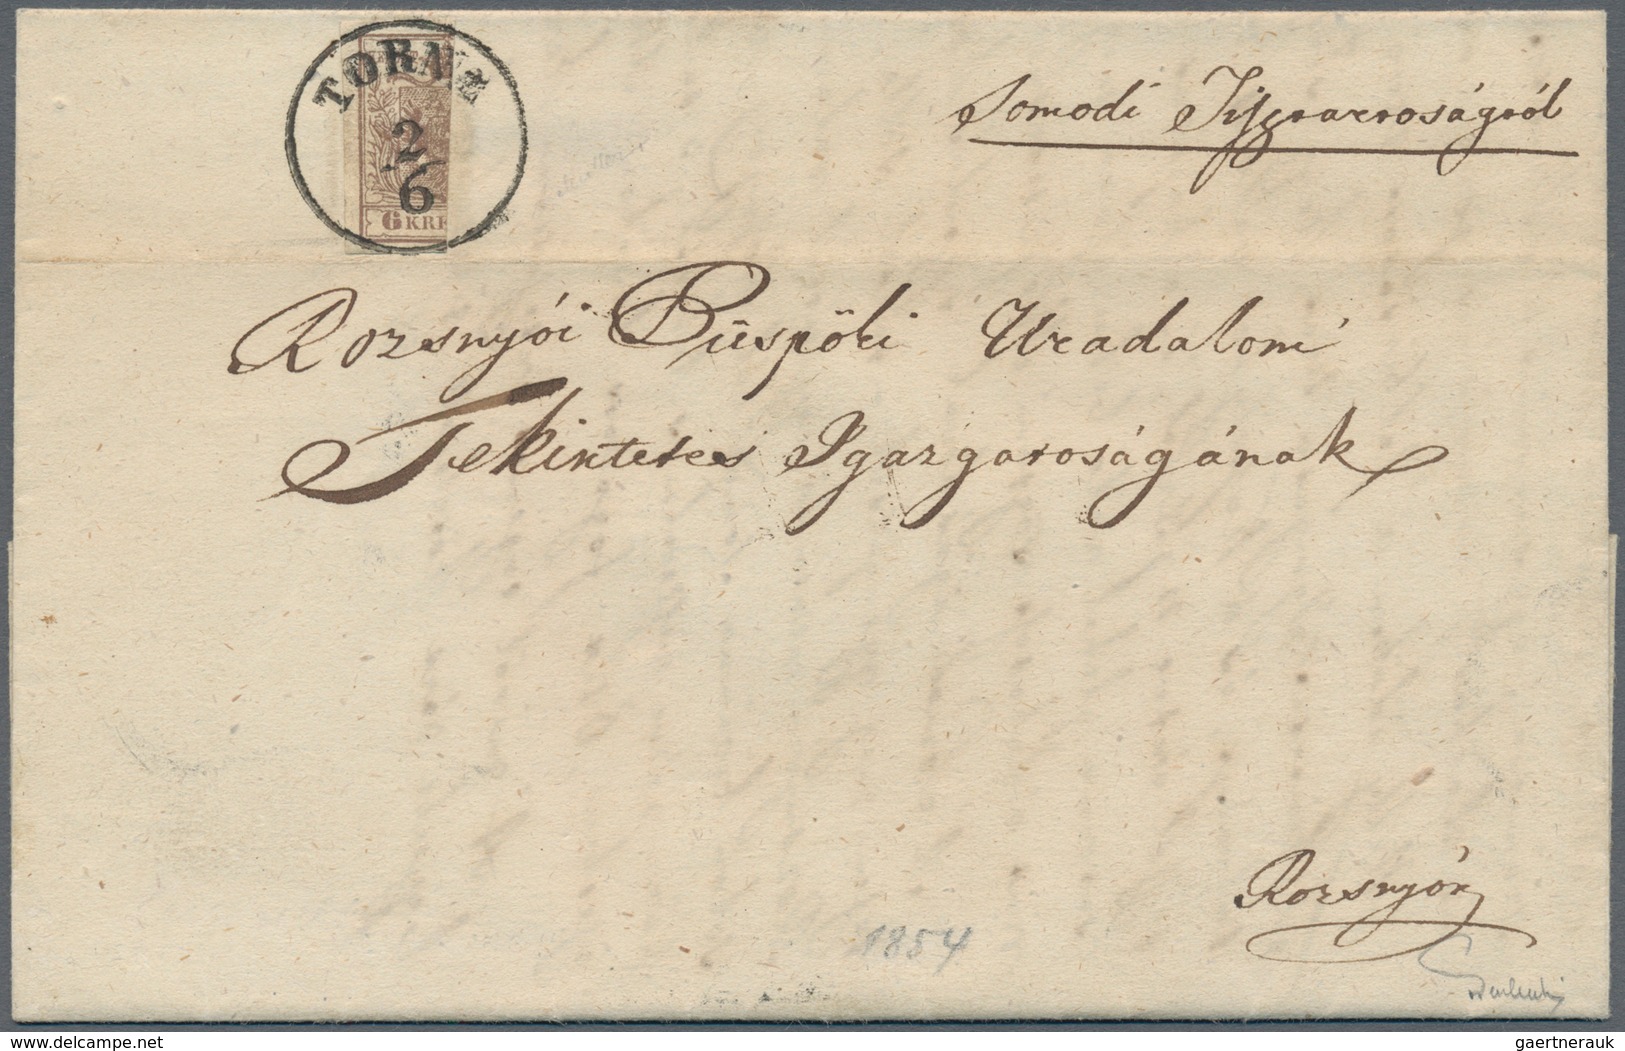 TORNA
2
6
6 KRE
Somodi Tisztartóságról
Rozsnyói Püspöki Uradalomi
Tekintetes Igazgatóságának
Rozsnyón
1854
www.delcampe.net
gaertnerauk